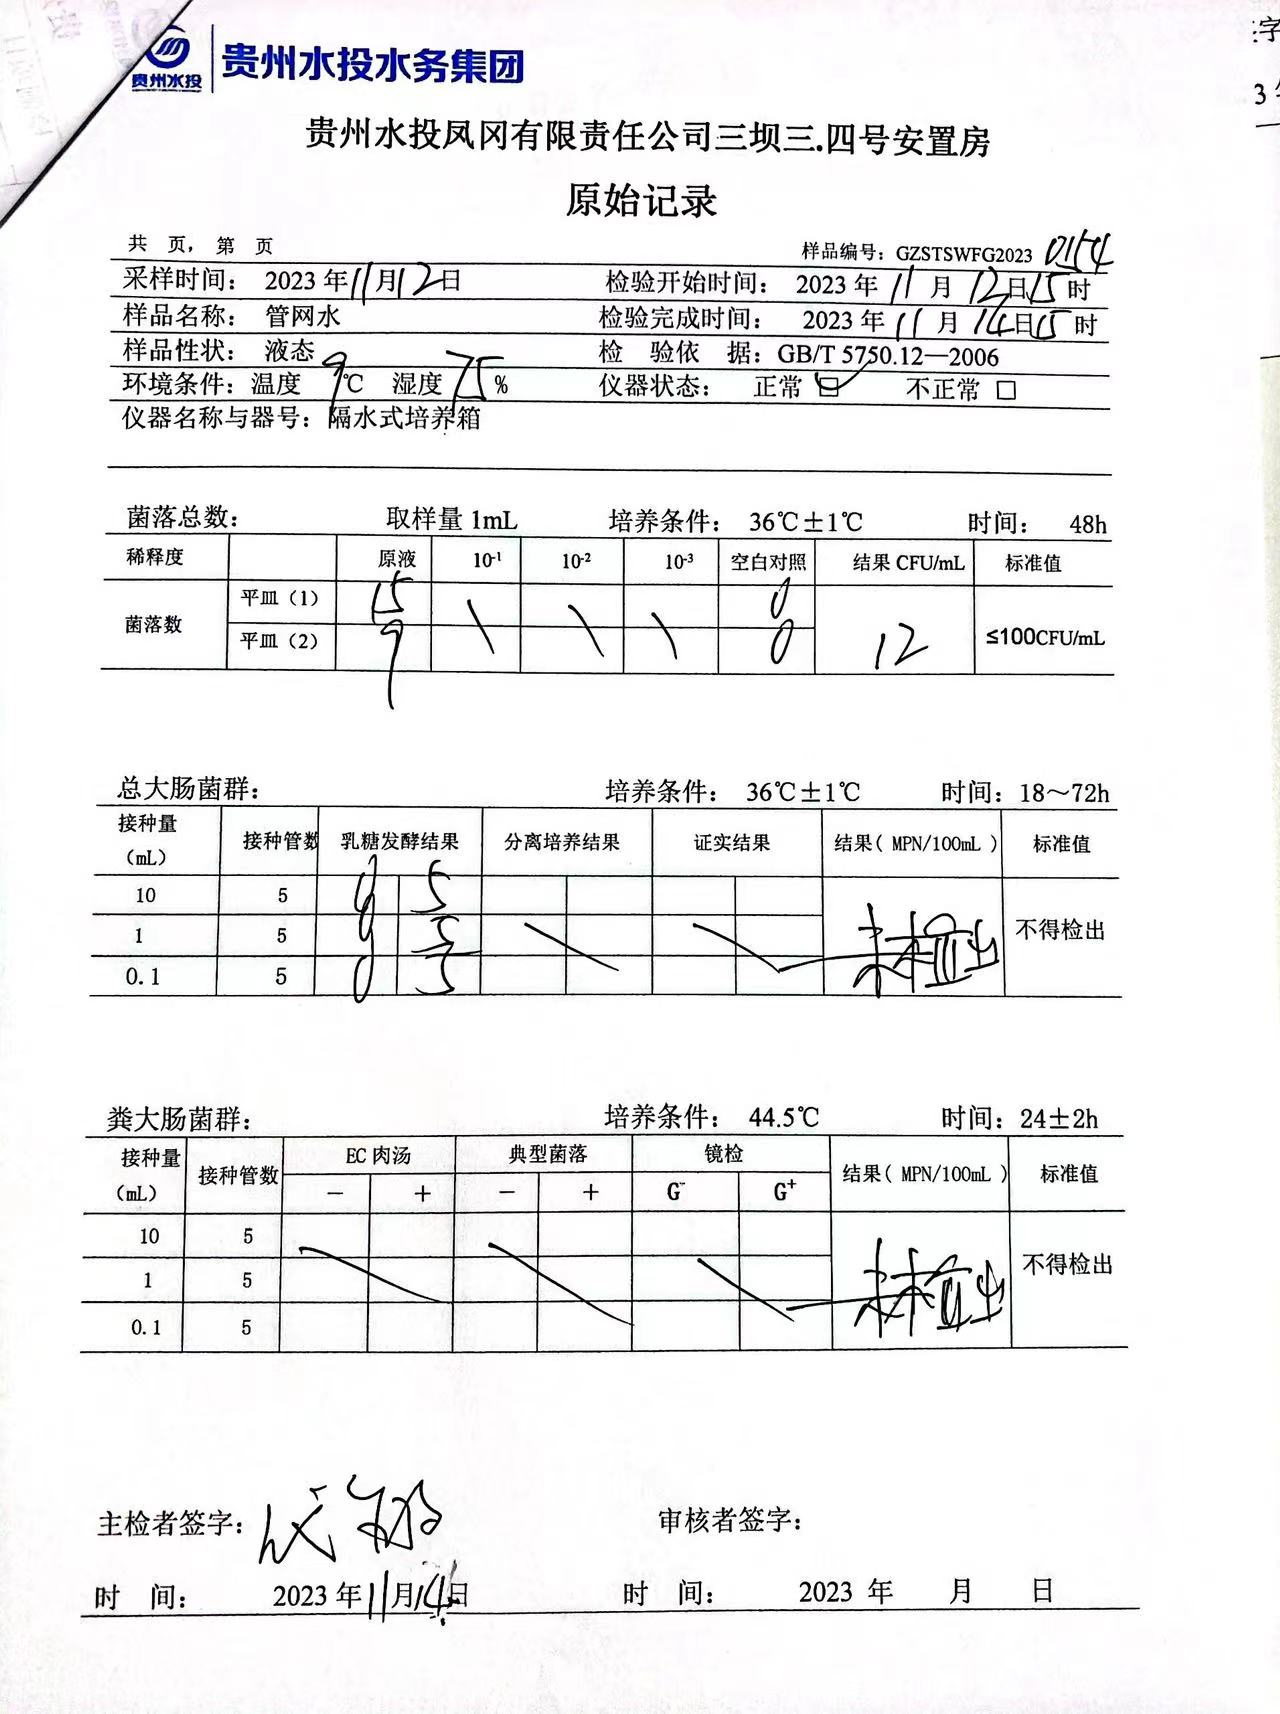 贵州水投 贵州水投水务集团
贵州水投凤冈有限责任公司三坝三.四号安置房
原始记录
共 页，第 页 样品编号：GZSTSWFG2023 0154
采样时间： 2023 年 11 月 12 日 检验开始时间： 2023 年 11 月 12 日 15 时
样品名称： 管网水 检验完成时间： 2023 年 11 月 14 日 15 时
样品性状： 液态 检 验依 据：GB/T 5750.12—2006
环境条件：温度 9 ℃ 湿度 75 % 仪器状态： 正常 ☑ 不正常 □
仪器名称与器号：隔水式培养箱
菌落总数： 取样量 1mL 培养条件： 36℃±1℃ 时间： 48h
稀释度 原液 10-1 10-2 10-3 空白对照 结果 CFU/mL 标准值
菌落数 平皿（1） 15 \ \ \ 0 12 ≤100CFU/mL
平皿（2） 9 0
总大肠菌群： 培养条件： 36℃±1℃ 时间：18～72h
接种量（mL） 接种管数 乳糖发酵结果 分离培养结果 证实结果 结果（ MPN/100mL ） 标准值
10 5 0 5 未检出 不得检出
1 5 0 5
0.1 5 0 5
粪大肠菌群： 培养条件： 44.5℃ 时间：24±2h
接种量（mL） 接种管数 EC 肉汤 典型菌落 镜检 结果（ MPN/100mL ） 标准值
— + — + G- G+
10 5 未检出 不得检出
1 5
0.1 5
主检者签字： 审核者签字：
时 间： 2023 年 11 月 14 日 时 间： 2023 年 月 日